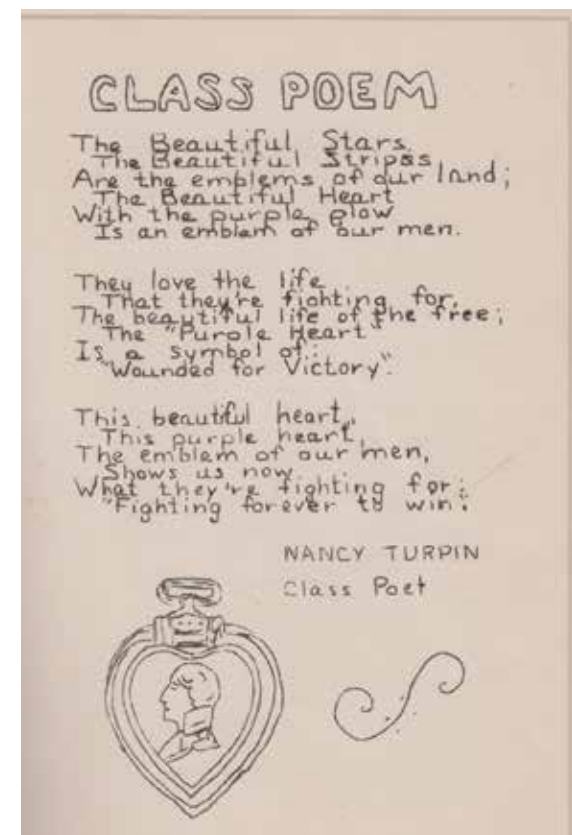 CLASS POEM
The Beautiful Stars,
The Beautiful Stripes,
Are the emblems of our land;
The Beautiful Heart
With the purple glow
Is an emblem of our men.
They love the life
That they're fighting for,
The beautiful life of the free;
The "Purple Heart"
Is a symbol of:
"Wounded for Victory".
This beautiful heart,
This purple heart,
The emblem of our men,
Shows us now
What they're fighting for;
"Fighting forever to win".
NANCY TURPIN
Class Poet